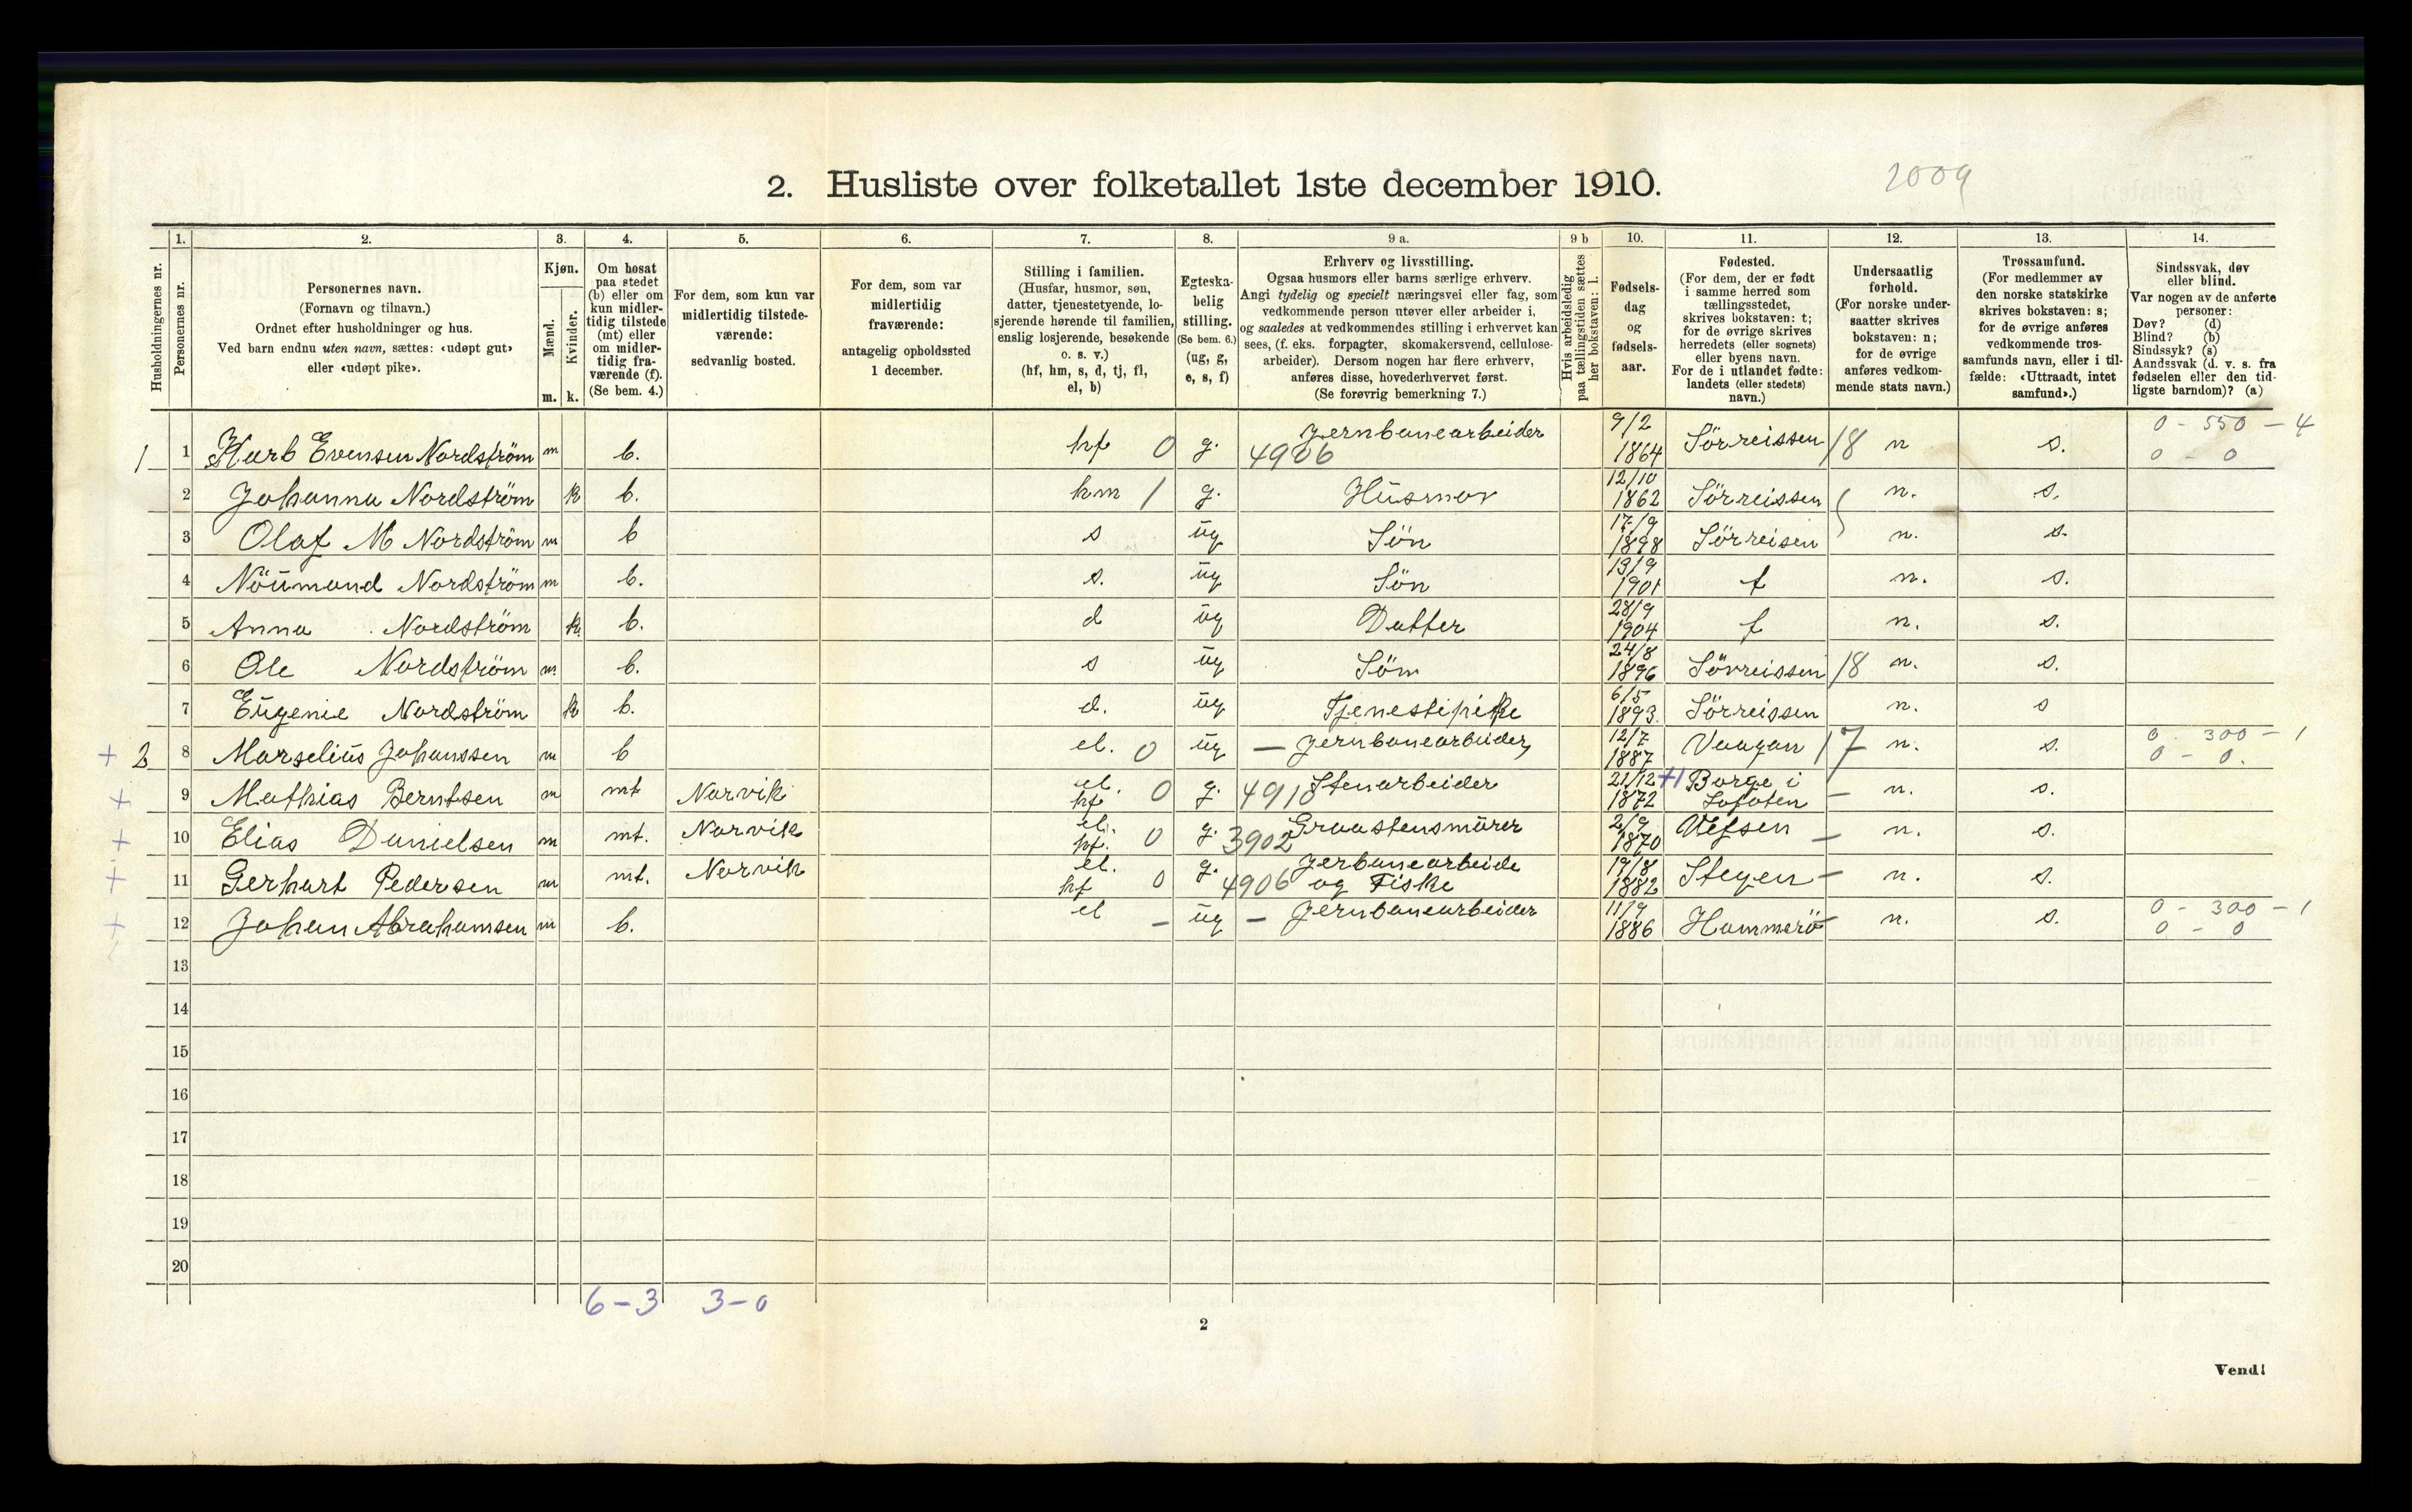 2. Husliste over folketallet 1ste december 1910.
2009
Husholdningernes nr.
1. Personernes nr.
2. Personernes navn.
(Fornavn og tilnavn.)
Ordnet efter husholdninger og hus.
Ved barn endnu uten navn, sættes: «udøpt gut»
eller «udøpt pike».
3. Kjøn.
Mænd. m.
Kvinder. k.
4. Om bosat
paa stedet
(b) eller om
kun midler-
tidig tilstede
(mt) eller
om midler-
tidig fra-
værende (f).
(Se bem. 4.)
5. For dem, som kun var
midlertidig tilstede-
værende:
sedvanlig bosted.
6. For dem, som var
midlertidig
fraværende:
antagelig opholdssted
1 december.
7. Stilling i familien.
(Husfar, husmor, søn,
datter, tjenestetyende, lo-
sjerende hørende til familien,
enslig losjerende, besøkende
o. s. v.)
(hf, hm, s, d, tj, fl,
el, b)
8. Egteska-
belig
stilling.
(Se bem. 6.)
(ug, g,
e, s, f)
9 a. Erhverv og livsstilling.
Ogsaa husmors eller barns særlige erhverv.
Angi tydelig og specielt næringsvei eller fag, som
vedkommende person utøver eller arbeider i,
og saaledes at vedkommendes stilling i erhvervet kan
sees, (f. eks. forpagter, skomakersvend, cellulose-
arbeider). Dersom nogen har flere erhverv,
anføres disse, hovederhvervet først.
(Se forøvrig bemerkning 7.)
9 b Hvis arbeidsledig
paa tællingstiden sættes
her bokstaven: l.
10. Fødsels-
dag
og
fødsels-
aar.
11. Fødested.
(For dem, der er født
i samme herred som
tællingsstedet,
skrives bokstaven: t;
for de øvrige skrives
herredets (eller sognets)
eller byens navn.
For de i utlandet fødte:
landets (eller stedets)
navn.)
12. Undersaatlig
forhold.
(For norske under-
saatter skrives
bokstaven: n;
for de øvrige
anføres vedkom-
mende stats navn.)
13. Trossamfund.
(For medlemmer av
den norske statskirke
skrives bokstaven: s;
for de øvrige anføres
vedkommende tros-
samfunds navn, eller i til-
fælde: «Uttraadt, intet
samfund».)
14. Sindssvak, døv
eller blind.
Var nogen av de anførte
personer:
Døv? (d)
Blind? (b)
Sindssyk? (s)
Aandssvak (d. v. s. fra
fødselen eller den tid-
ligste barndom)? (a)
1 1 Evensen Nordström m b. hf 0 g. Jernbanearbeider 4906 9/2 1864 Sörreissen 18 n s. 0 - 550 - 4 0 - 0
2 Johanna Nordström k b. hm 1 g. Husmor 12/10 1862 Sörreissen n. s.
3 Olaf M Nordström m b s ug Sön 17/9 1898 Sörreisen n. s.
4 Nordström m b. s. ug Sön 13/9 1901 t n. s.
5 Anna Nordström k. b. d ug Datter 28/9 1904 t n. s.
6 Ole Nordström m. b. s ug Sön 24/8 1896 Sörreissen 18 n. s.
7 Eugenie Nordström k b. d. ug Tjenestipike 6/5 1893. Sörreissen n. s
+ 2 8 Marselius Johanssen m b el. 0 ug — Jernbanearbeider 12/7 1887 Vaagan 17 n. s. 0 - 300 - 1 0 - 0.
+ 9 Mathias Berntsen m mt Narvik el. hf 0 g. 4910 Stenarbeider 21/12 1872 +1 Borge i Lofoten — n. s.
+ 10 Elias Danielsen m mt. Narvik el. hf. 0 g. 3902 Graastensmürer 2/9 1870 Vefsen — n. s.
+ 11 Gerhart Pedersen m mt. Narvik el. hf 0 g. 4906 Jerbanearbeide og Fiske 19/8 1882 Stegen — n. s.
+ 12 Johan Abrahamsen m b. el — ug — Jernbanearbeider 11/9 1886 Hammerö — n. s. 0 - 300 - 1 0 - 0
13
14
15
16
17
18
19
20
6-3 3-0
2
Vend!